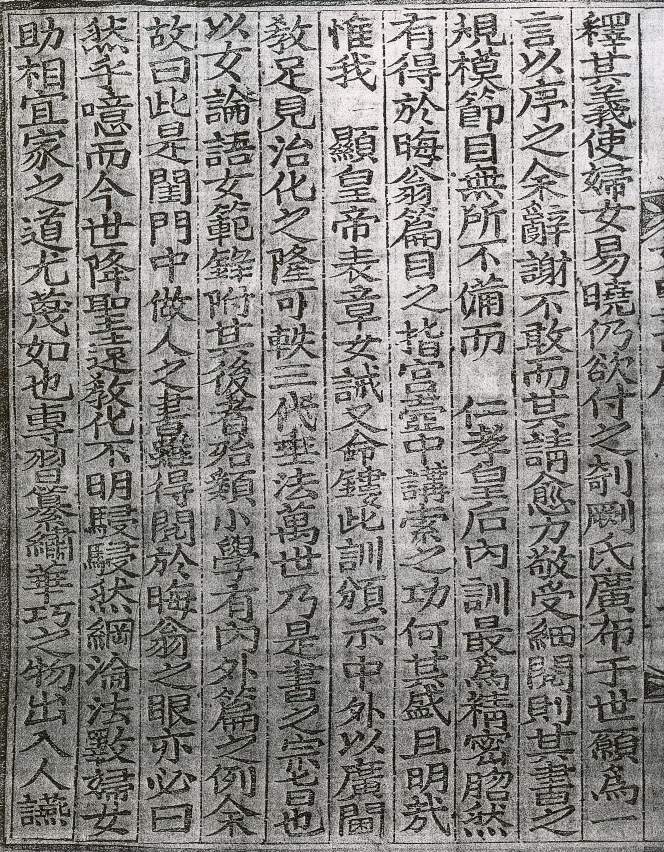 釋其義使婦女易曉仍欲付之剞劂氏廣布于世願爲一
言以序之余辭謝不敢而其請愈力敬受細閱則其書之
規模節目無所不備而 仁孝皇后內訓最爲精密脗然
有得於晦翁篇目之指宮壼中講索之功何其盛且明哉
惟我 顯皇帝表章女誡又命鋟此訓頒示中外以廣閫
敎足見治化之隆可軼三代垂法萬世乃是書之宗旨也
以女論語女範録附其後者殆類小學有內外篇之例余
故曰此是閨門中做人之書雖得閱於晦翁之眼亦必曰
然乎噫而今世降聖遠敎化不明駸駸然綱淪法斁婦女
助相宜家之道尤蔑如也專習纂繡華巧之物出入人讌